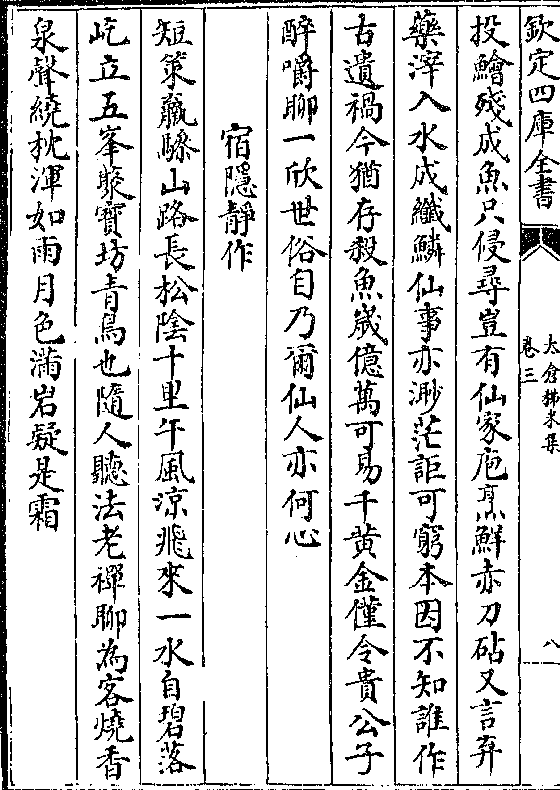 欽定四庫全書
太倉稊米集
卷三
八
投鱠殘成魚只侵尋豈有仙家庖烹鮮赤刀砧又言弃
藥滓入水成纖鱗仙事亦渺茫詎可窮本因不知誰作
古遺禍今猶存殺魚嵗億萬可易千黄金僅令貴公子
醉嚼聊一欣世俗自乃爾仙人亦何心
宿隱靜作
短策羸驂山路長松陰十里午風涼飛來一水自碧落
屹立五峯聚寳坊青鳥也隨人聽法老禪聊為客燒香
泉聲繞枕渾如雨月色滿岩疑是霜